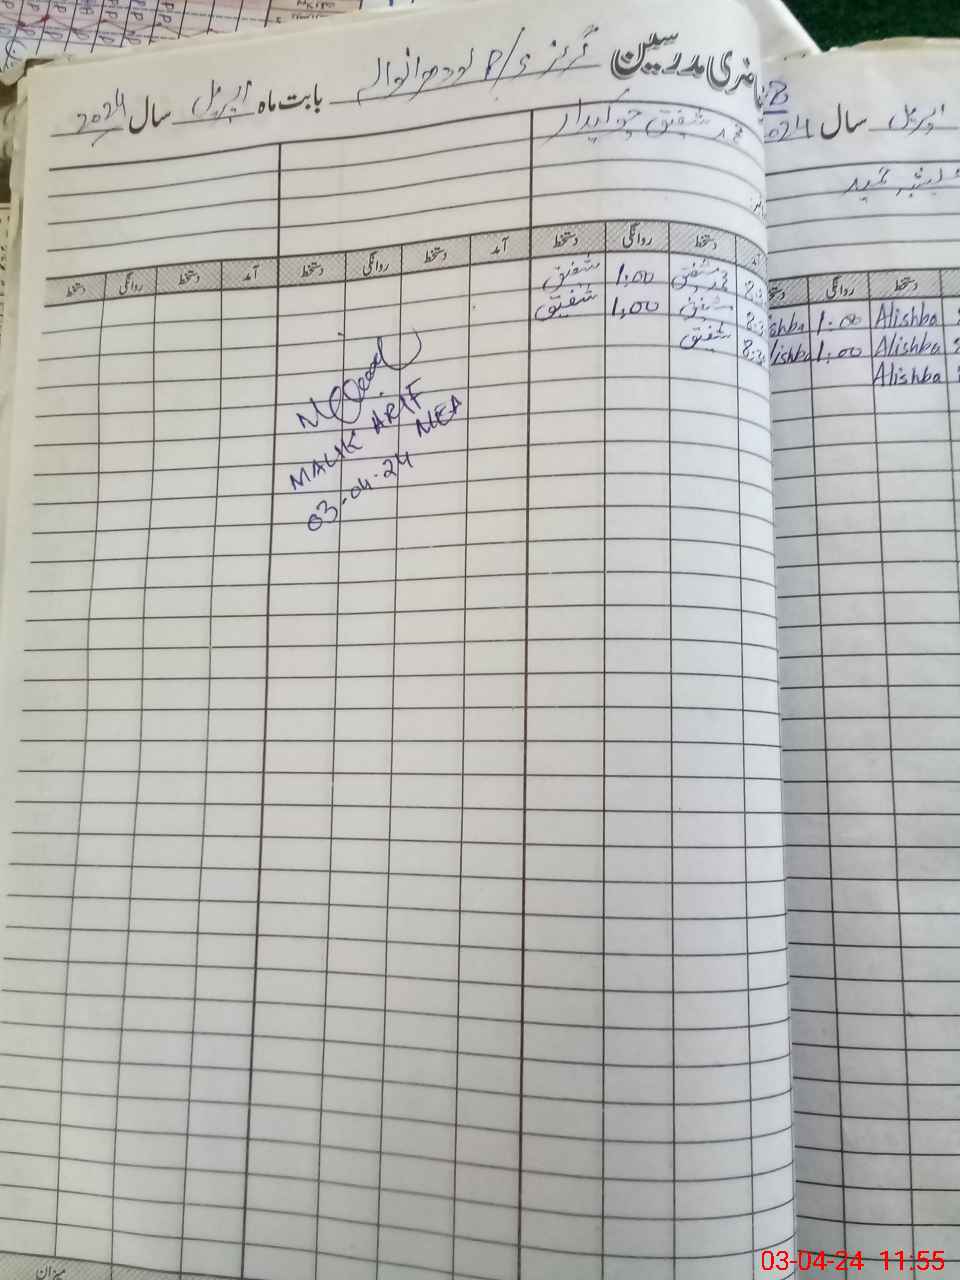 حاضری مدرسین گرلز P/S لودھرانوالہ بابت ماہ اپریل سال 2024
محمد شفیق چوکیدار
آمد دستخط روانگی دستخط آمد دستخط روانگی دستخط آمد دستخط روانگی دستخط
محمد شفیق 1:00 شفیق
شفیق 1:00 شفیق
شفیق
MALIK ARIF
MEA
03-04-24
میزان
اپریل سال 2024
دستخط روانگی دستخط
Alishba 1:00 ishba
Alishba 1:00 lishba
Alishba
03-04-24 11:55